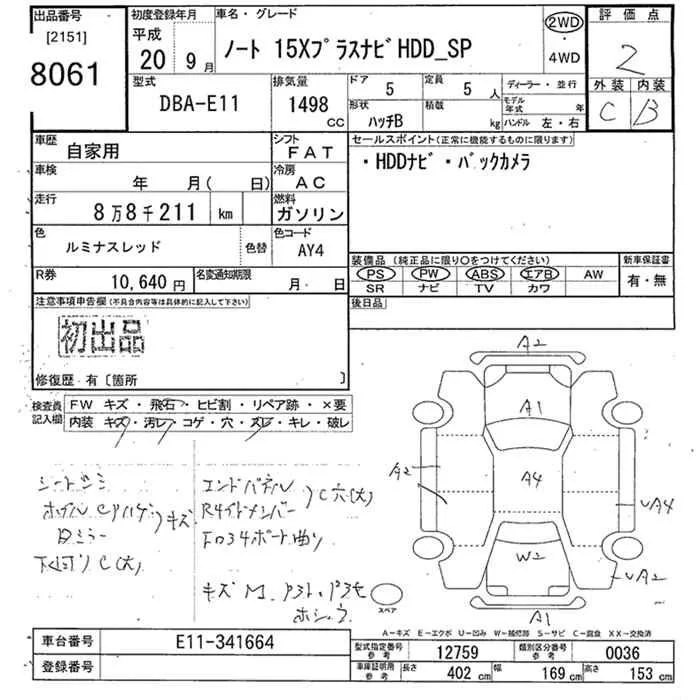 出品番号
[2151]
8061
初度登録年月
平成
20 9月
車名・グレード
ノート 15XプラスナビHDD_SP
2WD
・
4WD
評価点
2
外装 内装
C B
型式
DBA-E11
排気量
1498
CC
ドア
5
定員
5 人
形状
ハッチB
積載
kg
ディーラー・並行
モデル年式 年
ハンドル 左・右
車歴
自家用
シフト
FAT
車検
年 月( 日)
冷房
AC
走行
8万8千211 km
燃料
ガソリン
色
ルミナスレッド
色替
色コード
AY4
R券
10,640円
名変通知期限
月 日
セールスポイント(正常に機能するものに限ります)
・HDDナビ・バックカメラ
装備品 (純正品に限り○をつけてください)
PS PW ABS エアB AW
SR ナビ TV カワ
新車保証書
有・無
後日品
注意事項申告欄(不具合内容等は具体的に記入して下さい)
初出品
修復歴・有〔箇所 〕
検査員記入欄
FW キズ・飛石・ヒビ割・リペア跡・×要
内装 キズ・汚レ・コゲ・穴・ズレ・キレ・破レ
エンドパネル
C穴(大)
キズ
下回りC(大)
A2
A1
A2
A4
UA4
W2
UA2
A1
スペア
A-キズ E-エクボ U-凹み W-補修跡 S-サビ C-腐食 XX-交換済
車台番号
E11-341664
登録番号
型式指定番号
参考
12759
類別区分番号
参考
0036
車庫証明用
参考
長さ 402 cm
幅 169 cm
高さ 153 cm